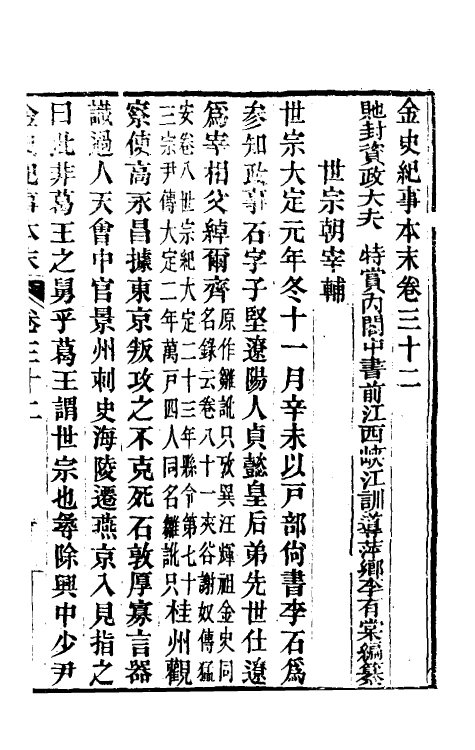 金史紀事本末卷三十二
貤封資政大夫 特賞內閣中書前江西峽江訓導萍鄉李有棠編纂
世宗朝宰輔
世宗大定元年冬十一月辛未以戸部尙書李石爲
參知政事石字子堅遼陽人貞懿皇后弟先世仕遼
爲宰相父綽爾齊原作雛訛只攷異汪輝祖金史同
名錄云卷八十一夾谷謝奴傳猛
安卷八世宗紀大定二十三年縣令第七十
三宗尹傳大定二年萬戸四人同名雛訛只桂州觀
察使高永昌據東京叛攻之不克死石敦厚寡言器
識過人天會中官景州刺史海陵遷燕京入見指之
曰此非葛王之舅乎葛王謂世宗也尋除興中少尹
金史紀事本末 卷三十二